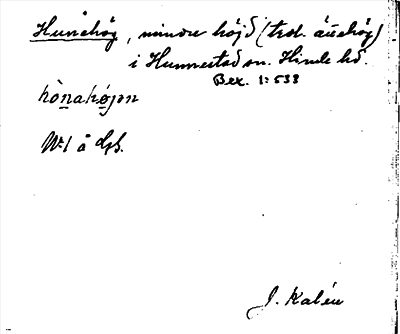 Hunåhög, mindre höjd (trol. ättehög)
i Hunnestad sn. Himle hd.
Bex. 1:538
hònahö̀jen
J. Kalén